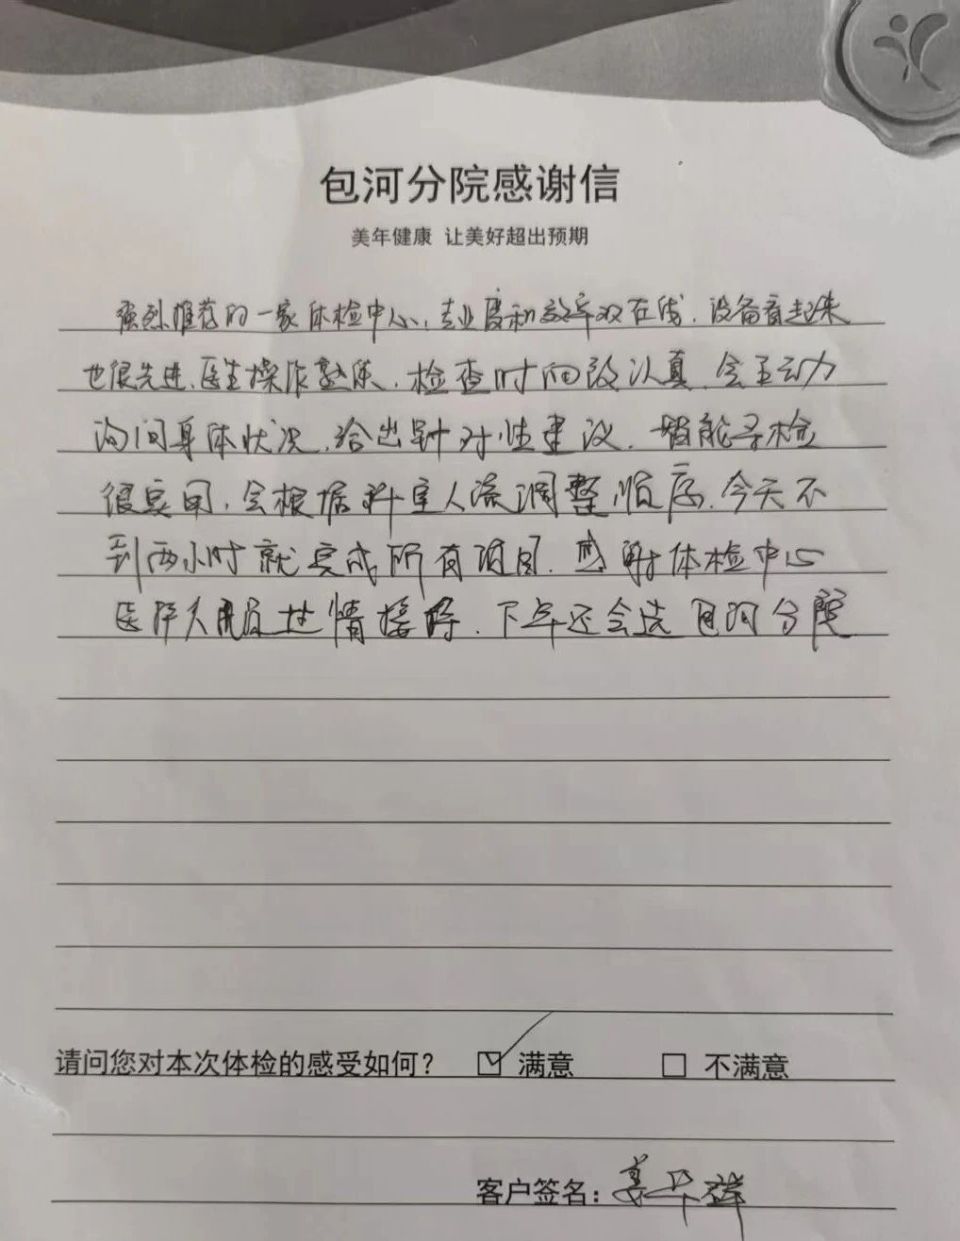 包河分院感谢信
美年健康 让美好超出预期
强烈推荐的一家体检中心,专业度和效率双在线.设备看起来
也很先进,医生操作熟练.检查时间段认真.会主动力
询问身体状况,给出针对性建议.智能导检
很实用,会根据科室人流调整顺序.今天不
到两小时就完成所有项目.感谢体检中心
医护人员热情接待.下年还会选包河分院
请问您对本次体检的感受如何? ☑ 满意 □ 不满意
客户签名:姜华祥